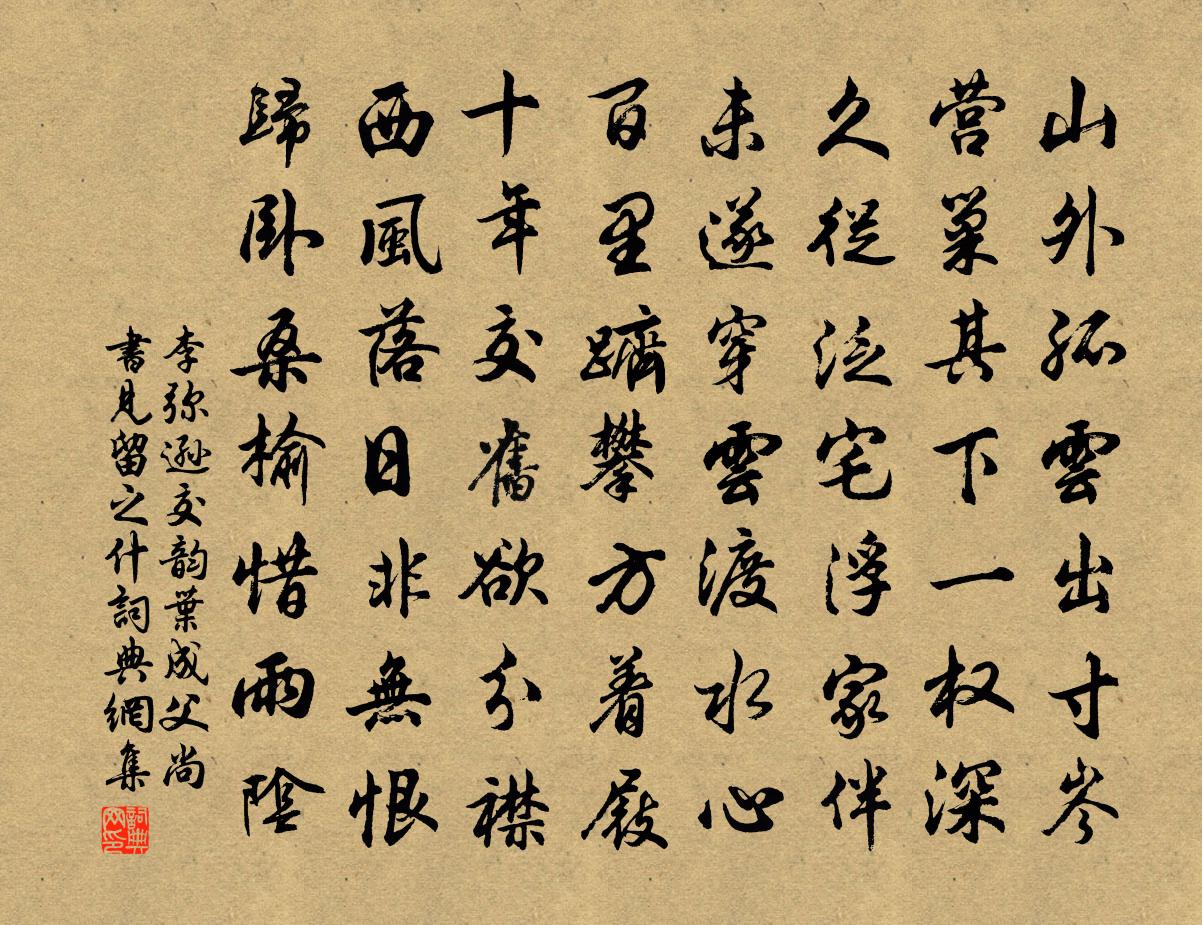 山外孤雲出寸岑
营巢其下一权深
久從泛宅浮家伴
未遂穿雲渡水心
百里躋攀方着屐
十年交舊欲分襟
西風落日非無恨
歸臥桑榆惜雨陰
李弥遜交韵葉成父尚
書見留之什詞典網集
詞典网印